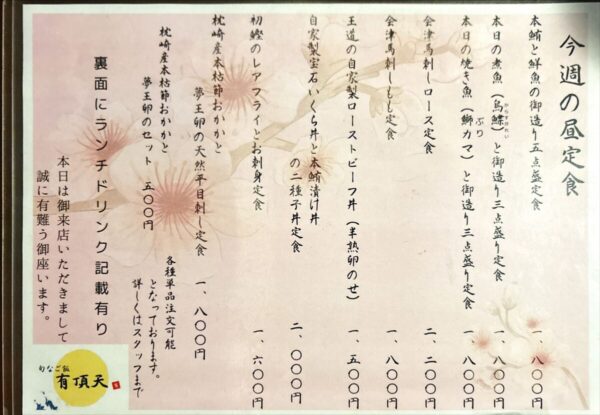 今週の昼定食
本鮪と鮮魚の御造り五点盛り定食 一、八〇〇円
本日の煮魚（烏鰈）と御造り三点盛り定食 一、八〇〇円
からすがれい
本日の焼き魚（鰤カマ）と御造り三点盛り定食 一、八〇〇円
ぶり
会津馬刺しロース定食 二、二〇〇円
会津馬刺しもも定食 一、八〇〇円
王道の自家製ローストビーフ丼（半熟卵のせ） 一、五〇〇円
自家製宝石いくら丼と本鮪漬け丼
の二種子丼定食 二、〇〇〇円
初鰹のレアフライとお刺身定食 一、六〇〇円
枕崎産本枯節おかかと
夢王卵の天然平目刺し定食 一、八〇〇円
枕崎産本枯節おかかと
夢王卵のセット 五〇〇円
各種単品注文可能
となっております。
詳しくはスタッフまで
裏面にランチドリンク記載有り
本日は御来店いただきまして
誠に有難う御座います。
旬なご飯
有頂天